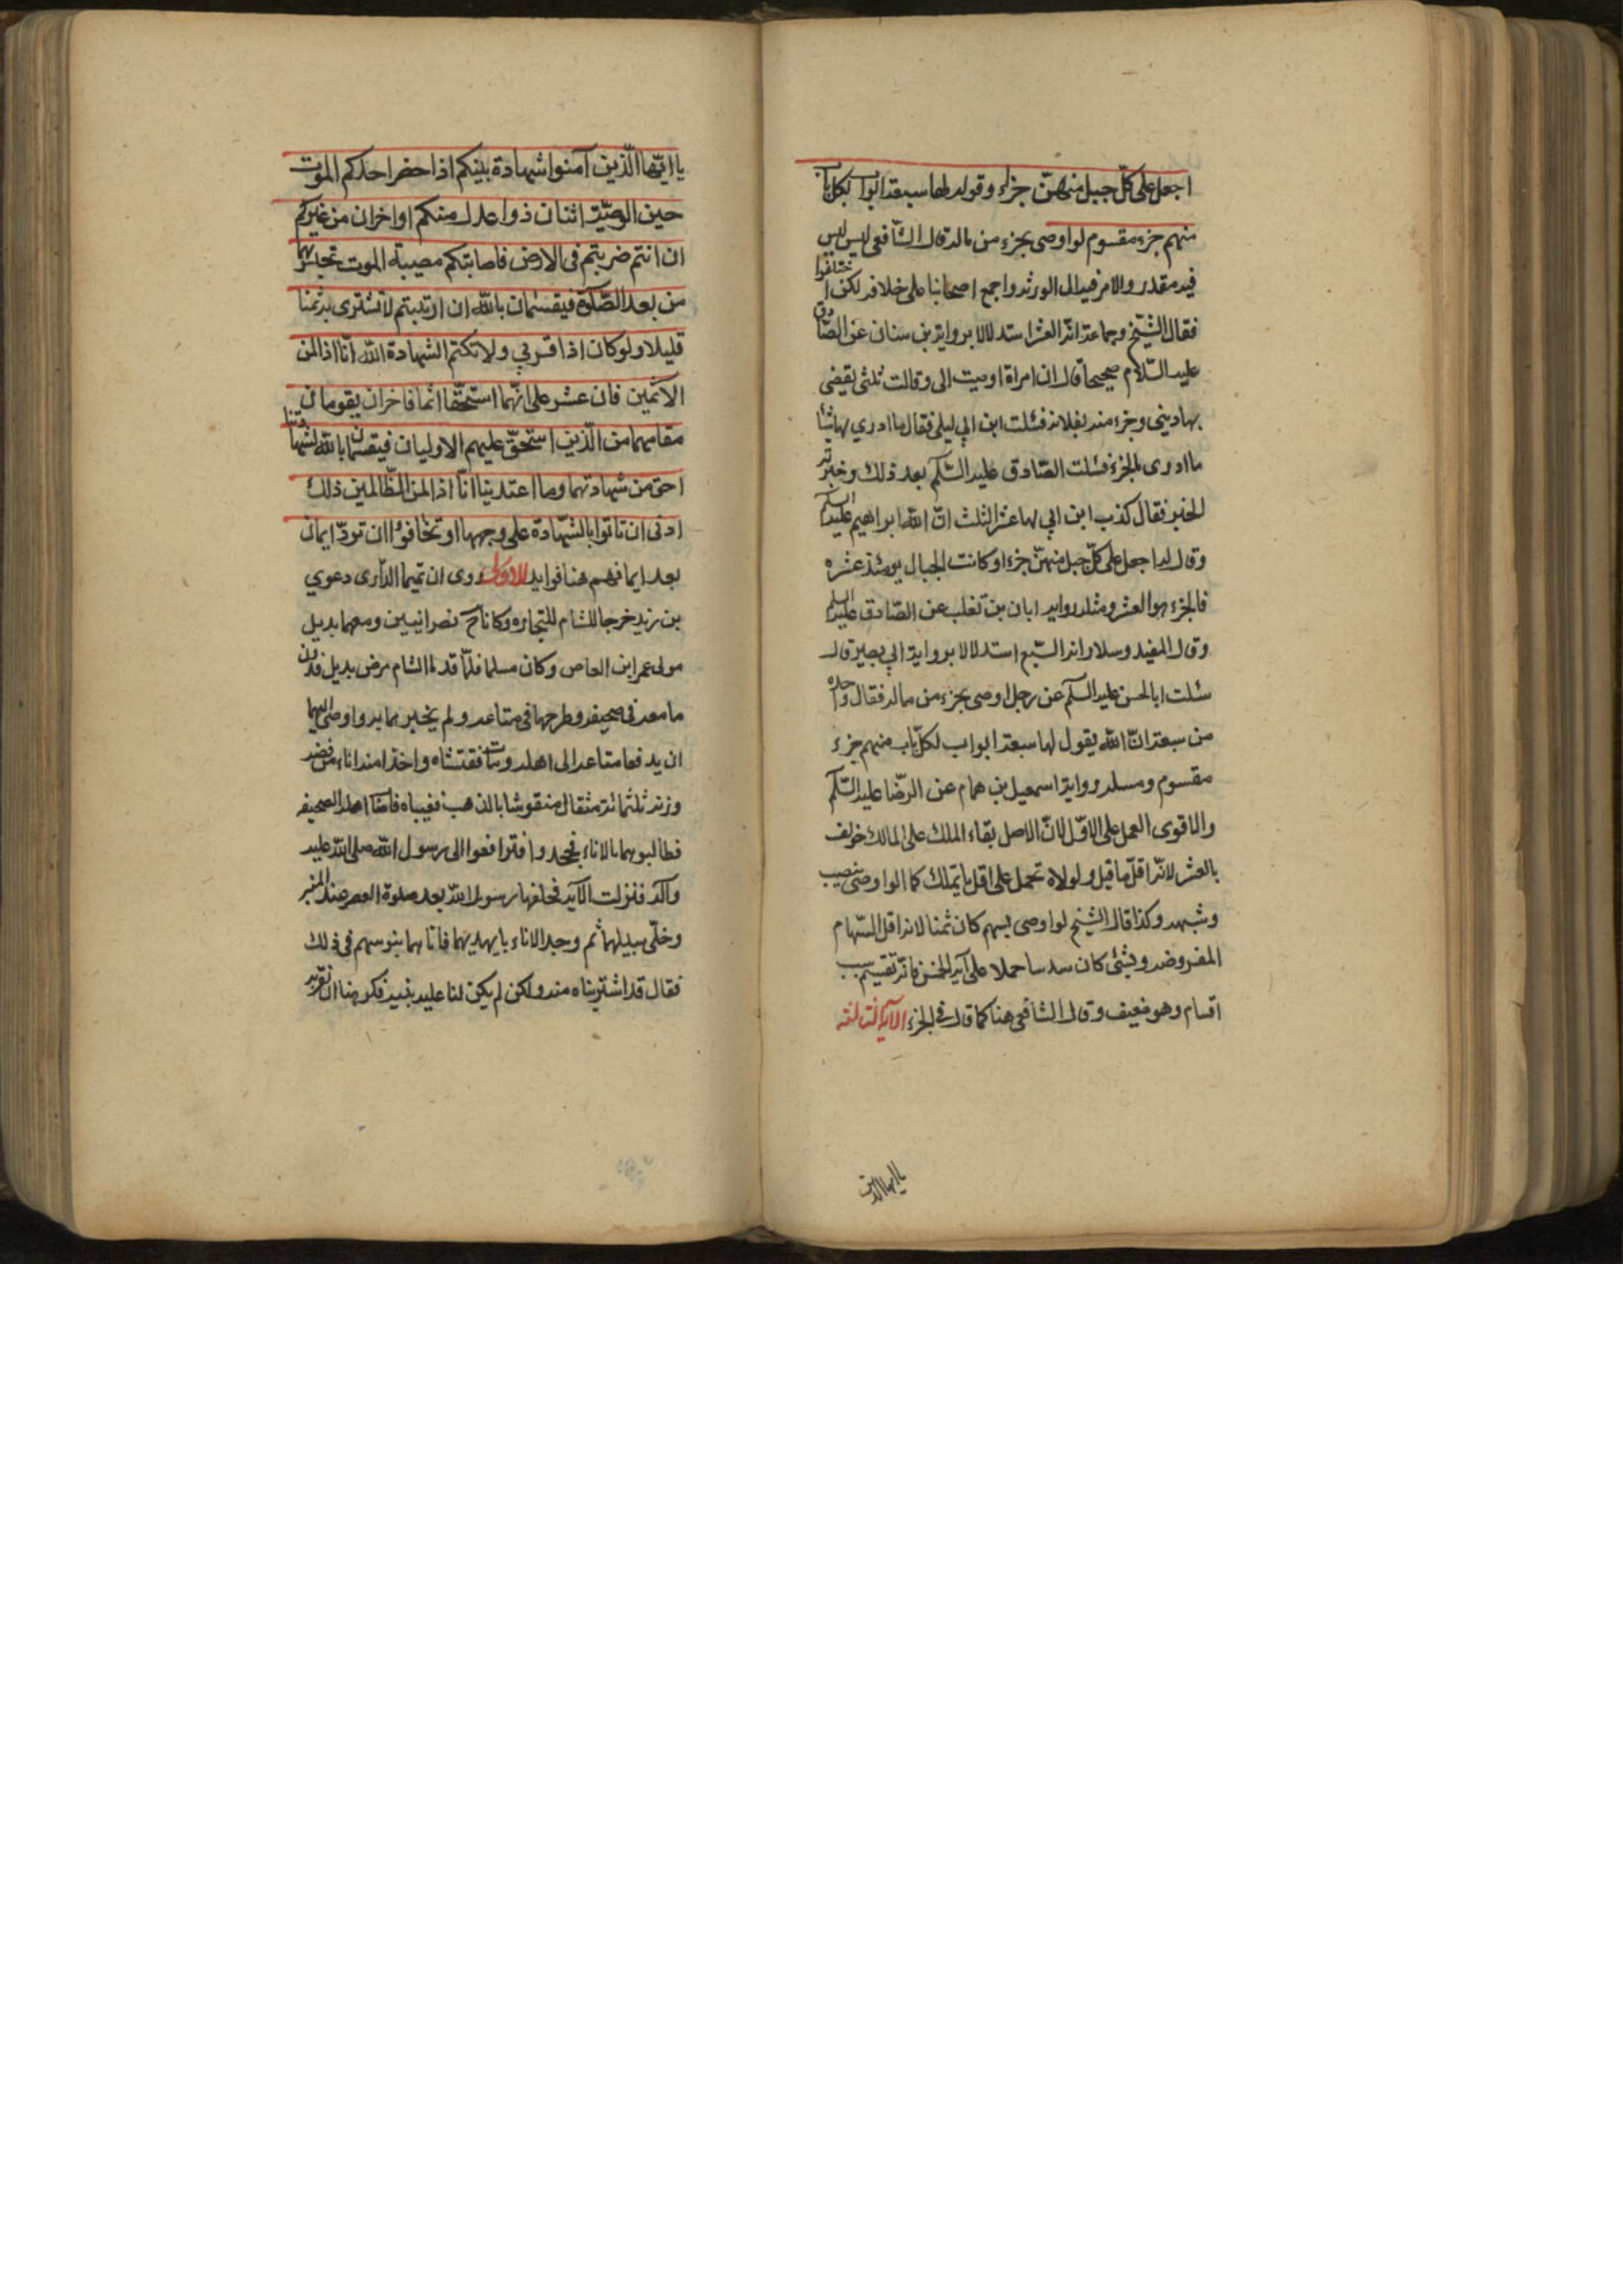 اجعل على كلّ جبل منهنّ جزاء وقوله لها سبعة ابواب لكل باب
منهم جزء مقسوم لو اوصى بجزء من ماله قال الشافعى ليس ليس
فيه مقدر والامر فيه الى الورثه واجمع اصحابنا على خلافه لكن اختلفوا
فقال الشيخ وجماعة انّه العشر استدلالا برواية بن سنان عن الصّادق
عليه السّلام صحيحا قال ان امراة اوصت الى وقالت ثلثى يقضى
بها دينى وجزء منه لفلانه فسئلت ابن ابي ليلى فقال ما ادري لها شيئا
ما ادرى ما الجزء فسئلت الصّادق عليه السّلم بعد ذلك وخبرته
الخبر فقال كذب ابن ابي لها عشر الثلث انّ الله ابراهيم عليه السلم
وقال له اجعل على كلّ جبل منهنّ جزءا وكانت الجبال يومئذ عشره
فالجزء هو العشر ومثله رواية ابان بن تغلب عن الصّادق عليه السلم
وقال المفيد وسلار انه السّبع استدلالا برواية ابي بصير قال
سئلت ابا الحسن عليه السلم عن رجل اوصى بجزء من ماله فقال واحده
من سبعة انّ الله يقول لها سبعة ابواب لكلّ باب منهم جزء
مقسوم ومسله رواية اسمعيل بن همام عن الرّضا عليه السّلم
والاقوى العمل على الاوّل لانّ الاصل بقاء الملك على المالك خولف
بالعشر لانّه اقلّ ما قيل ولولاه تحمل على اقل ما يتملك كما لو اوصى بنصيب
وشبهه وكذا قال الشيخ لو اوصى بسهم كان ثمنا لانه اقل السّهام
المفروضه وبشئ كان سدسا حملا على آية الخمس فانّه تقسيم ستّة
اقسام وهو ضعيف وقال الشافعى هنا كما قال فى الجزء الآية الثالثة
يا ايها الذين
يا ايّها الّذين آمنوا شهادة بينكم اذا حضر احدكم الموت
حين الوصيّة اثنان ذوا عدل منكم او اخران من غيركم
ان انتم ضربتم فى الارض فاصابتكم مصيبة الموت تحبسونهما
من بعد الصّلوة فيقسمان بالله ان ارتبتم لا نشترى به ثمنا
قليلا ولو كان اذا قربي ولا نكتم الشهادة الله انّا اذا لمن
الآثمين فان عثر على انّهما استحقّا اثما فاخران يقومان
مقامهما من الّذين استحقّ عليهم الاوليان فيقسمان بالله لشهادتنا
احق من شهادتهما وما اعتدينا انّا اذا لمن الظّالمين ذلك
ادنى ان تاتوا بالشّهادة على وجهها او تخافوا ان تردّ ايمان
بعد ايمانهم هنا فوايد الاولى روى ان تميما الدّارى دعوي
بن زيد خرجا للشام للتجاره وكانا نصرانيين ومعهما بديل
مولى عمر ابن العاص وكان مسلما فلمّا قدما الشام مرض بديل فدون
ما معه فى صحيفه وطرحها فى متاعه ولم يخبرهما به واوصى اليهما
ان يدفعا متاعه الى اهله ومات ففتشاه واخذا منه اناء من فضه
وزنه ثلثمائة مثقال منقوشا بالذهب فغيباه فاصاب اهله الصحيفه
فطالبوهما بالاناء فجحدوا فترافعوا الى رسول الله صلى الله عليه
وآله فنزلت الآية فحلفها رسول الله بعد صلوة العصر عند المنبر
وخلّى سبيلهما ثم وجد الاناء بايديهما فاتاهما بنو سهم فى ذلك
فقال قد اشتريناه منه ولكن لم يكن لنا عليه بيّنه فكرهنا ان نقرّ به